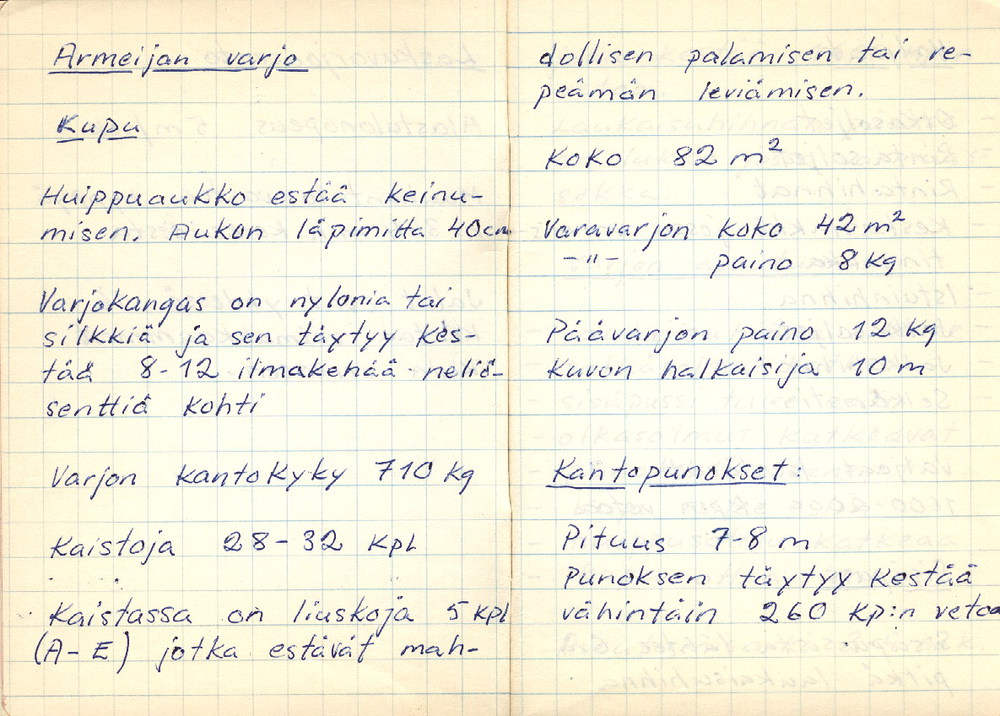 Armeijan varjo
Kupu
Huippuaukko estää keinu-
misen. Aukon läpimitta 40cm
Varjokangas on nylonia tai
silkkiä ja sen täytyy kes-
tää 8-12 ilmakehää neliö-
senttiä kohti
Varjon kantokyky 710 kg
Kaistoja 28-32 kpl
Kaistassa on liuskoja 5 kpl
(A-E) jotka estävät mah-
dollisen palamisen tai re-
peämän leviämisen.
Koko 82 m²
Varavarjon koko 42 m²
-"- paino 8 kg
Päävarjon paino 12 kg
Kuvon halkaisija 10 m
Kantopunokset:
Pituus 7-8 m
Punoksen täytyy kestää
vähintäin 260 kp:n vetoa